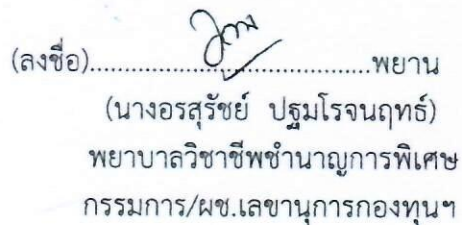 (ลงชื่อ)......................................พยาน
(นางอรสุรัชย์ ปฐมโรจนฤทธ์)
พยาบาลวิชาชีพชำนาญการพิเศษ
กรรมการ/ผช.เลขานุการกองทุนฯ